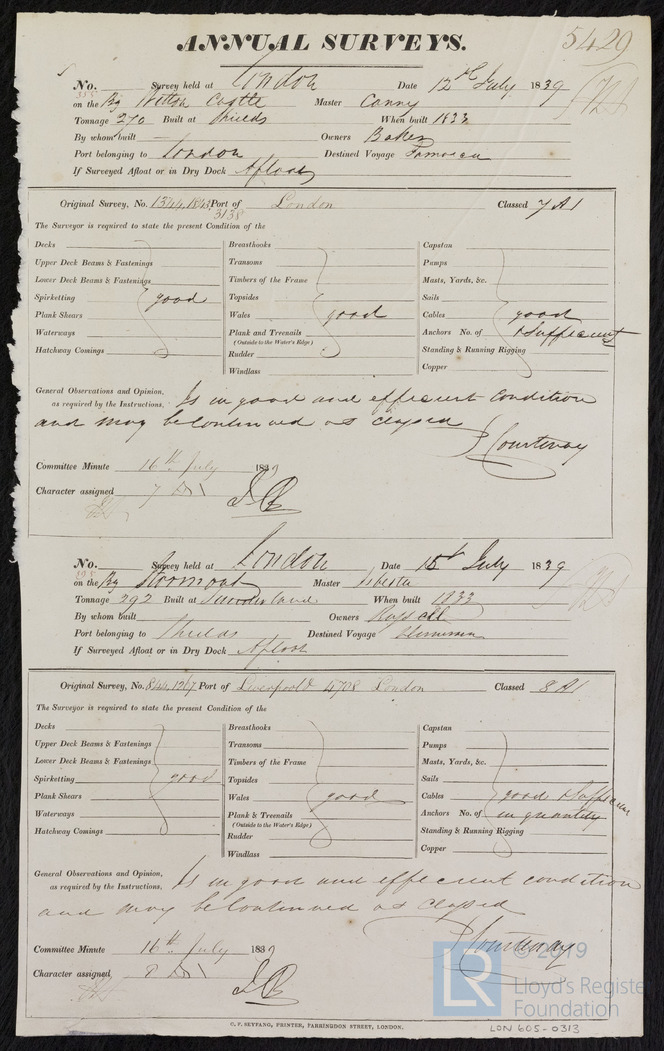 ANNUAL SURVEYS. 5429
No. Survey held at London Date 12th July 1839
on the Bg Witton Castle Master Canny
Tonnage 270 Built at Shields When built 1833
By whom built Owners Baker
Port belonging to London Destined Voyage Jamaica
If Surveyed Afloat or in Dry Dock Afloat
Original Survey, No. Port of London Classed 7 A1
3138
The Surveyor is required to state the present Condition of the
Decks Breasthooks Capstan
Upper Deck Beams & Fastenings Transoms Pumps
Lower Deck Beams & Fastenings Timbers of the Frame Masts, Yards, &c.
Spirketting good Topsides Sails
Plank Shears Wales good Cables good
Waterways Plank and Treenails Anchors No. of & Sufficient
(Outside to the Water's Edge)
Hatchway Comings Rudder Standing & Running Rigging
Windlass Copper
General Observations and Opinion, Is in good and efficient condition
as required by the Instructions.
and may be Continued as classed
J Courtenay
Committee Minute 16th July 1839
Character assigned 7 A1
No. Survey held at London Date 15th July 1839
on the Bg Stormont Master
Tonnage 292 Built at Sunderland When built 1833
By whom built Owners
Port belonging to Shields Destined Voyage
If Surveyed Afloat or in Dry Dock Afloat
Original Survey, No. Port of Liverpool & 4708 London Classed 8 A1
The Surveyor is required to state the present Condition of the
Decks Breasthooks Capstan
Upper Deck Beams & Fastenings Transoms Pumps
Lower Deck Beams & Fastenings Timbers of the Frame Masts, Yards, &c.
Spirketting good Topsides Sails
Plank Shears Wales good Cables good & Sufficient
Waterways Plank & Treenails Anchors No. of in quantity
(Outside to the Water's Edge)
Hatchway Comings Rudder Standing & Running Rigging
Windlass Copper
General Observations and Opinion, Is in good and efficient condition
as required by the Instructions.
and may be Continued as classed
J Courtenay
Committee Minute 16th July 1839
Character assigned 8 A1
C. F. SEYFANG, PRINTER, FARRINGDON STREET, LONDON.
LR © 2019
Lloyd's Register
Foundation
LON 605-0313